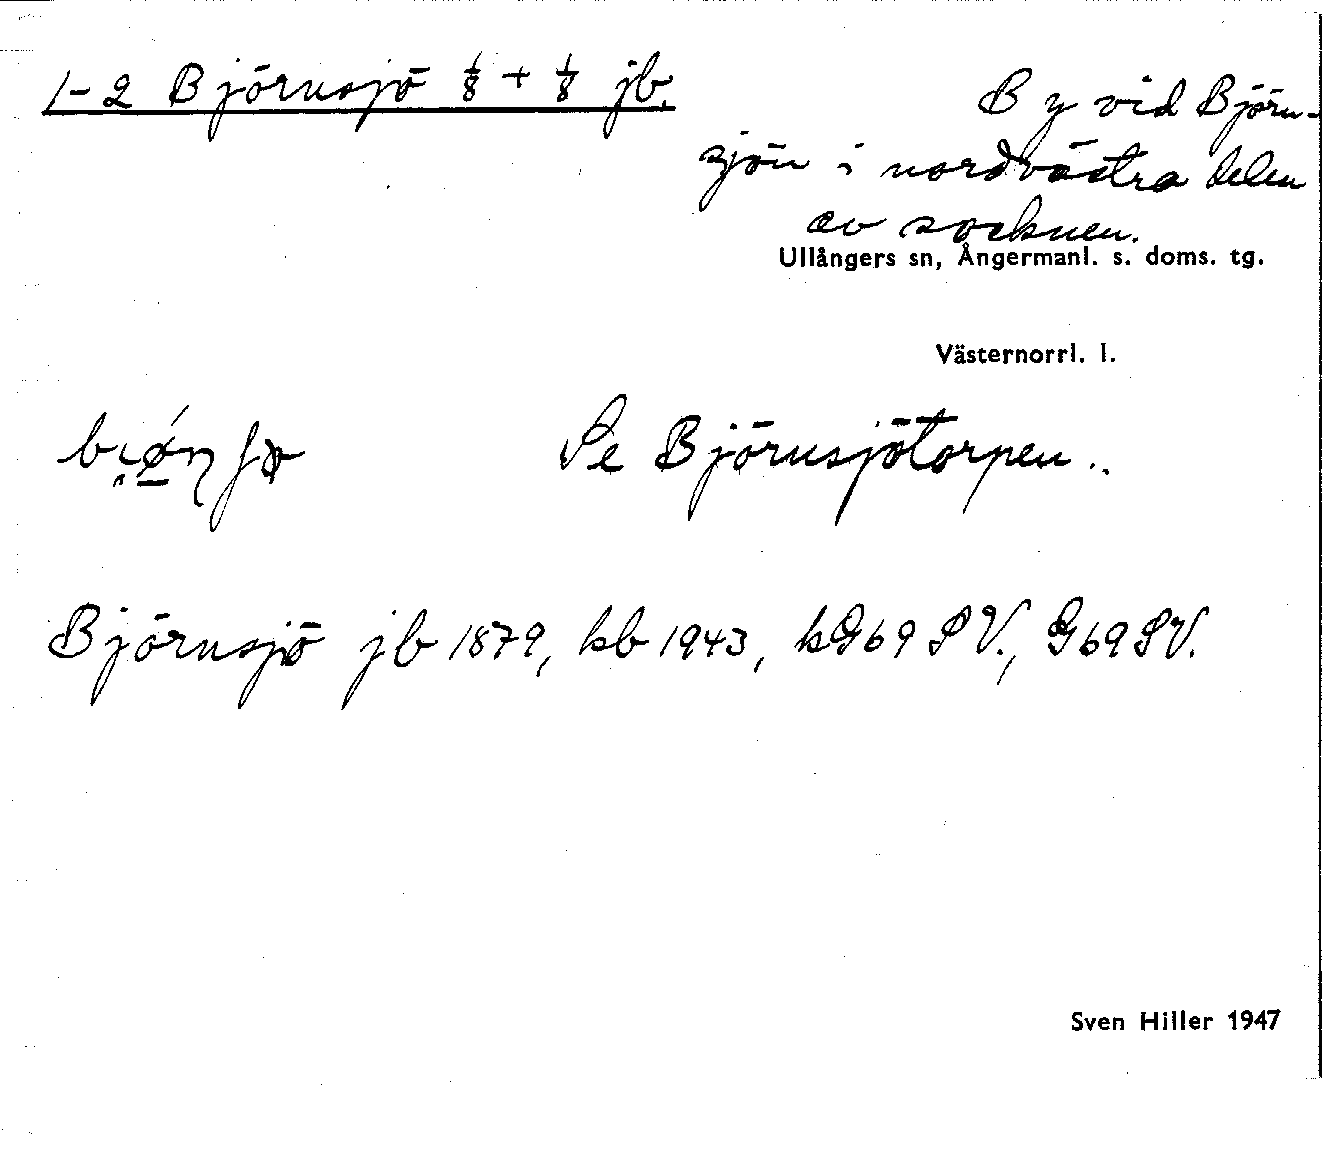 1-2 Björnsjö 1/8 + 1/8 jb.
By vid Björn-
sjön i nordvästra delen
av socknen.
Ullångers sn, Ångermanl. s. doms. tg.
Västernorrl. l.
Se Björnsjötorpen..
Björnsjö jb 1879, kb 1943, kG69SV., G69SV.
Sven Hiller 1947